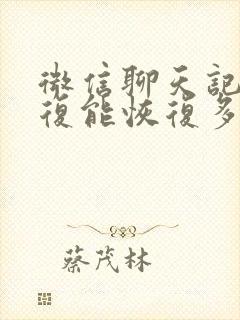 微信聊天記
復能恢復多
蔡茂林